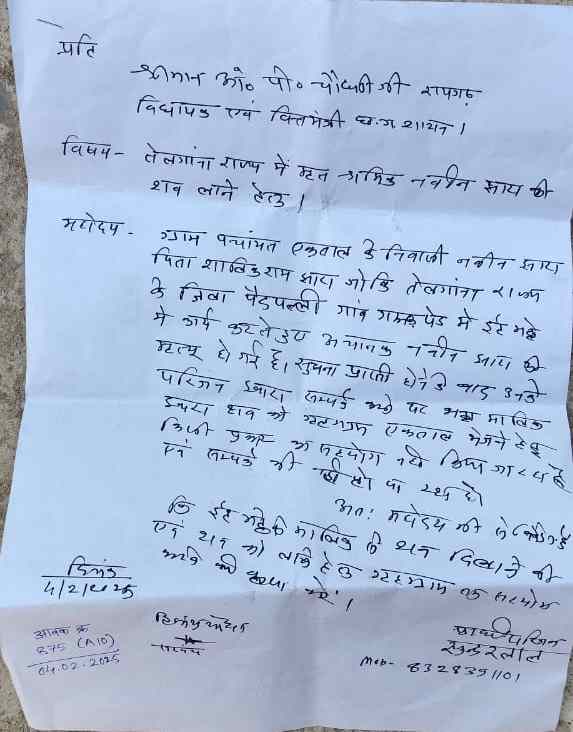 प्रति
श्रीमान ओ० पी० चौधरी जी रायगढ़
विधायक एवं वित्तमंत्री छ.ग शासन।
विषय- तेलगांना राज्य में मृत श्रमिक नवीन साय की
शव लाने हेतु।
महोदय- ग्राम पंचायत एकताल के निवासी नवीन साय
पिता शालिकराम साय जोकि तेलगांना राज्य
के जिला पैदपल्ली गांव में ईट भट्ठे
में कार्य करते हुए अचानक नवीन साय की
मृत्यु हो गई है। सुचना प्राप्ती होने के बाद उनके
परिजन द्वारा सम्पर्क करने पर भट्ठा मालिक
द्वारा शव को गृहग्राम एकताल भेजने हेतु
किसी प्रकार का सहयोग नही किया जा रहा है
एवं सम्पर्क भी नही हो पा रहा है।
अतः महोदय जी से निवेदन है
कि ईट भट्ठे के मालिक से शव दिलाने की
एवं शव को लाने हेतु गृहग्राम तक सहयोग
करने की कृपा करें।
दिनांक
4/2/2025
आवक क्र
875 (A10)
04.02.2025
प्रार्थी परिजन
सुन्दरलाल
Mob- 8328351101